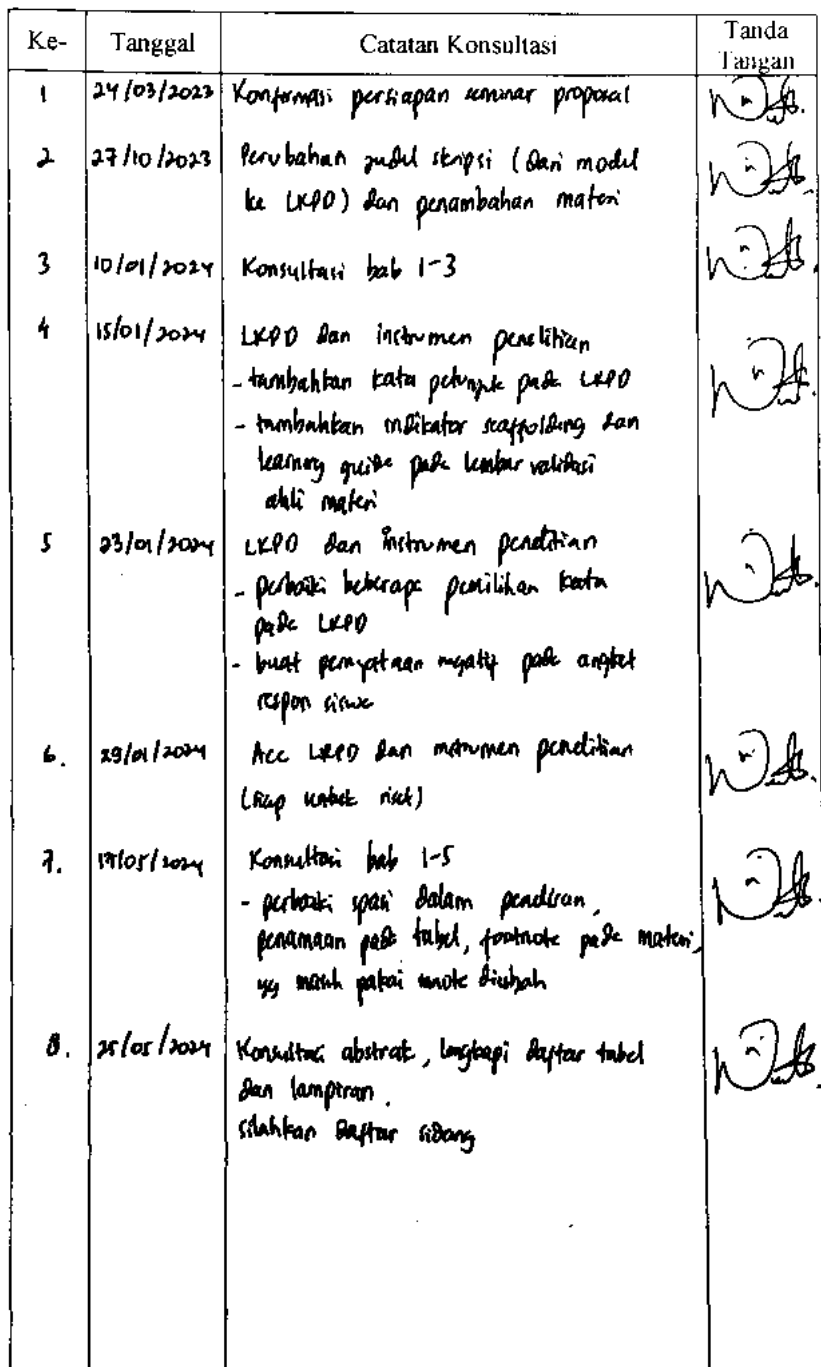 Ke- Tanggal Catatan Konsultasi Tanda Tangan
1 24/03/2023 Konfirmasi persiapan seminar proposal
2 27/10/2023 Perubahan judul skripsi (dari model
ke LKPD) dan penambahan materi
3 10/01/2024 Konsultasi bab 1-3
4 15/01/2024 LKPD dan instrumen penelitian
- tambahkan kata petunjuk pada LKPD
- tambahkan indikator scaffolding dan
learning guide pada lembar validasi
ahli materi
5 23/01/2024 LKPD dan instrumen penelitian
- perbaiki beberapa pemilihan kata
pada LKPD
- buat pernyataan negatif pada angket
respon siswa
6. 29/01/2024 Acc LKPD dan instrumen penelitian
(siap untuk riset)
7. /05/2024 Konsultasi bab 1-5
- perbaiki spasi dalam penulisan,
penamaan pada tabel, footnote pada materi,
yg masih pakai diubah
8. 25/05/2024 Konsultasi abstrak, lengkapi daftar tabel
dan lampiran.
silahkan daftar sidang